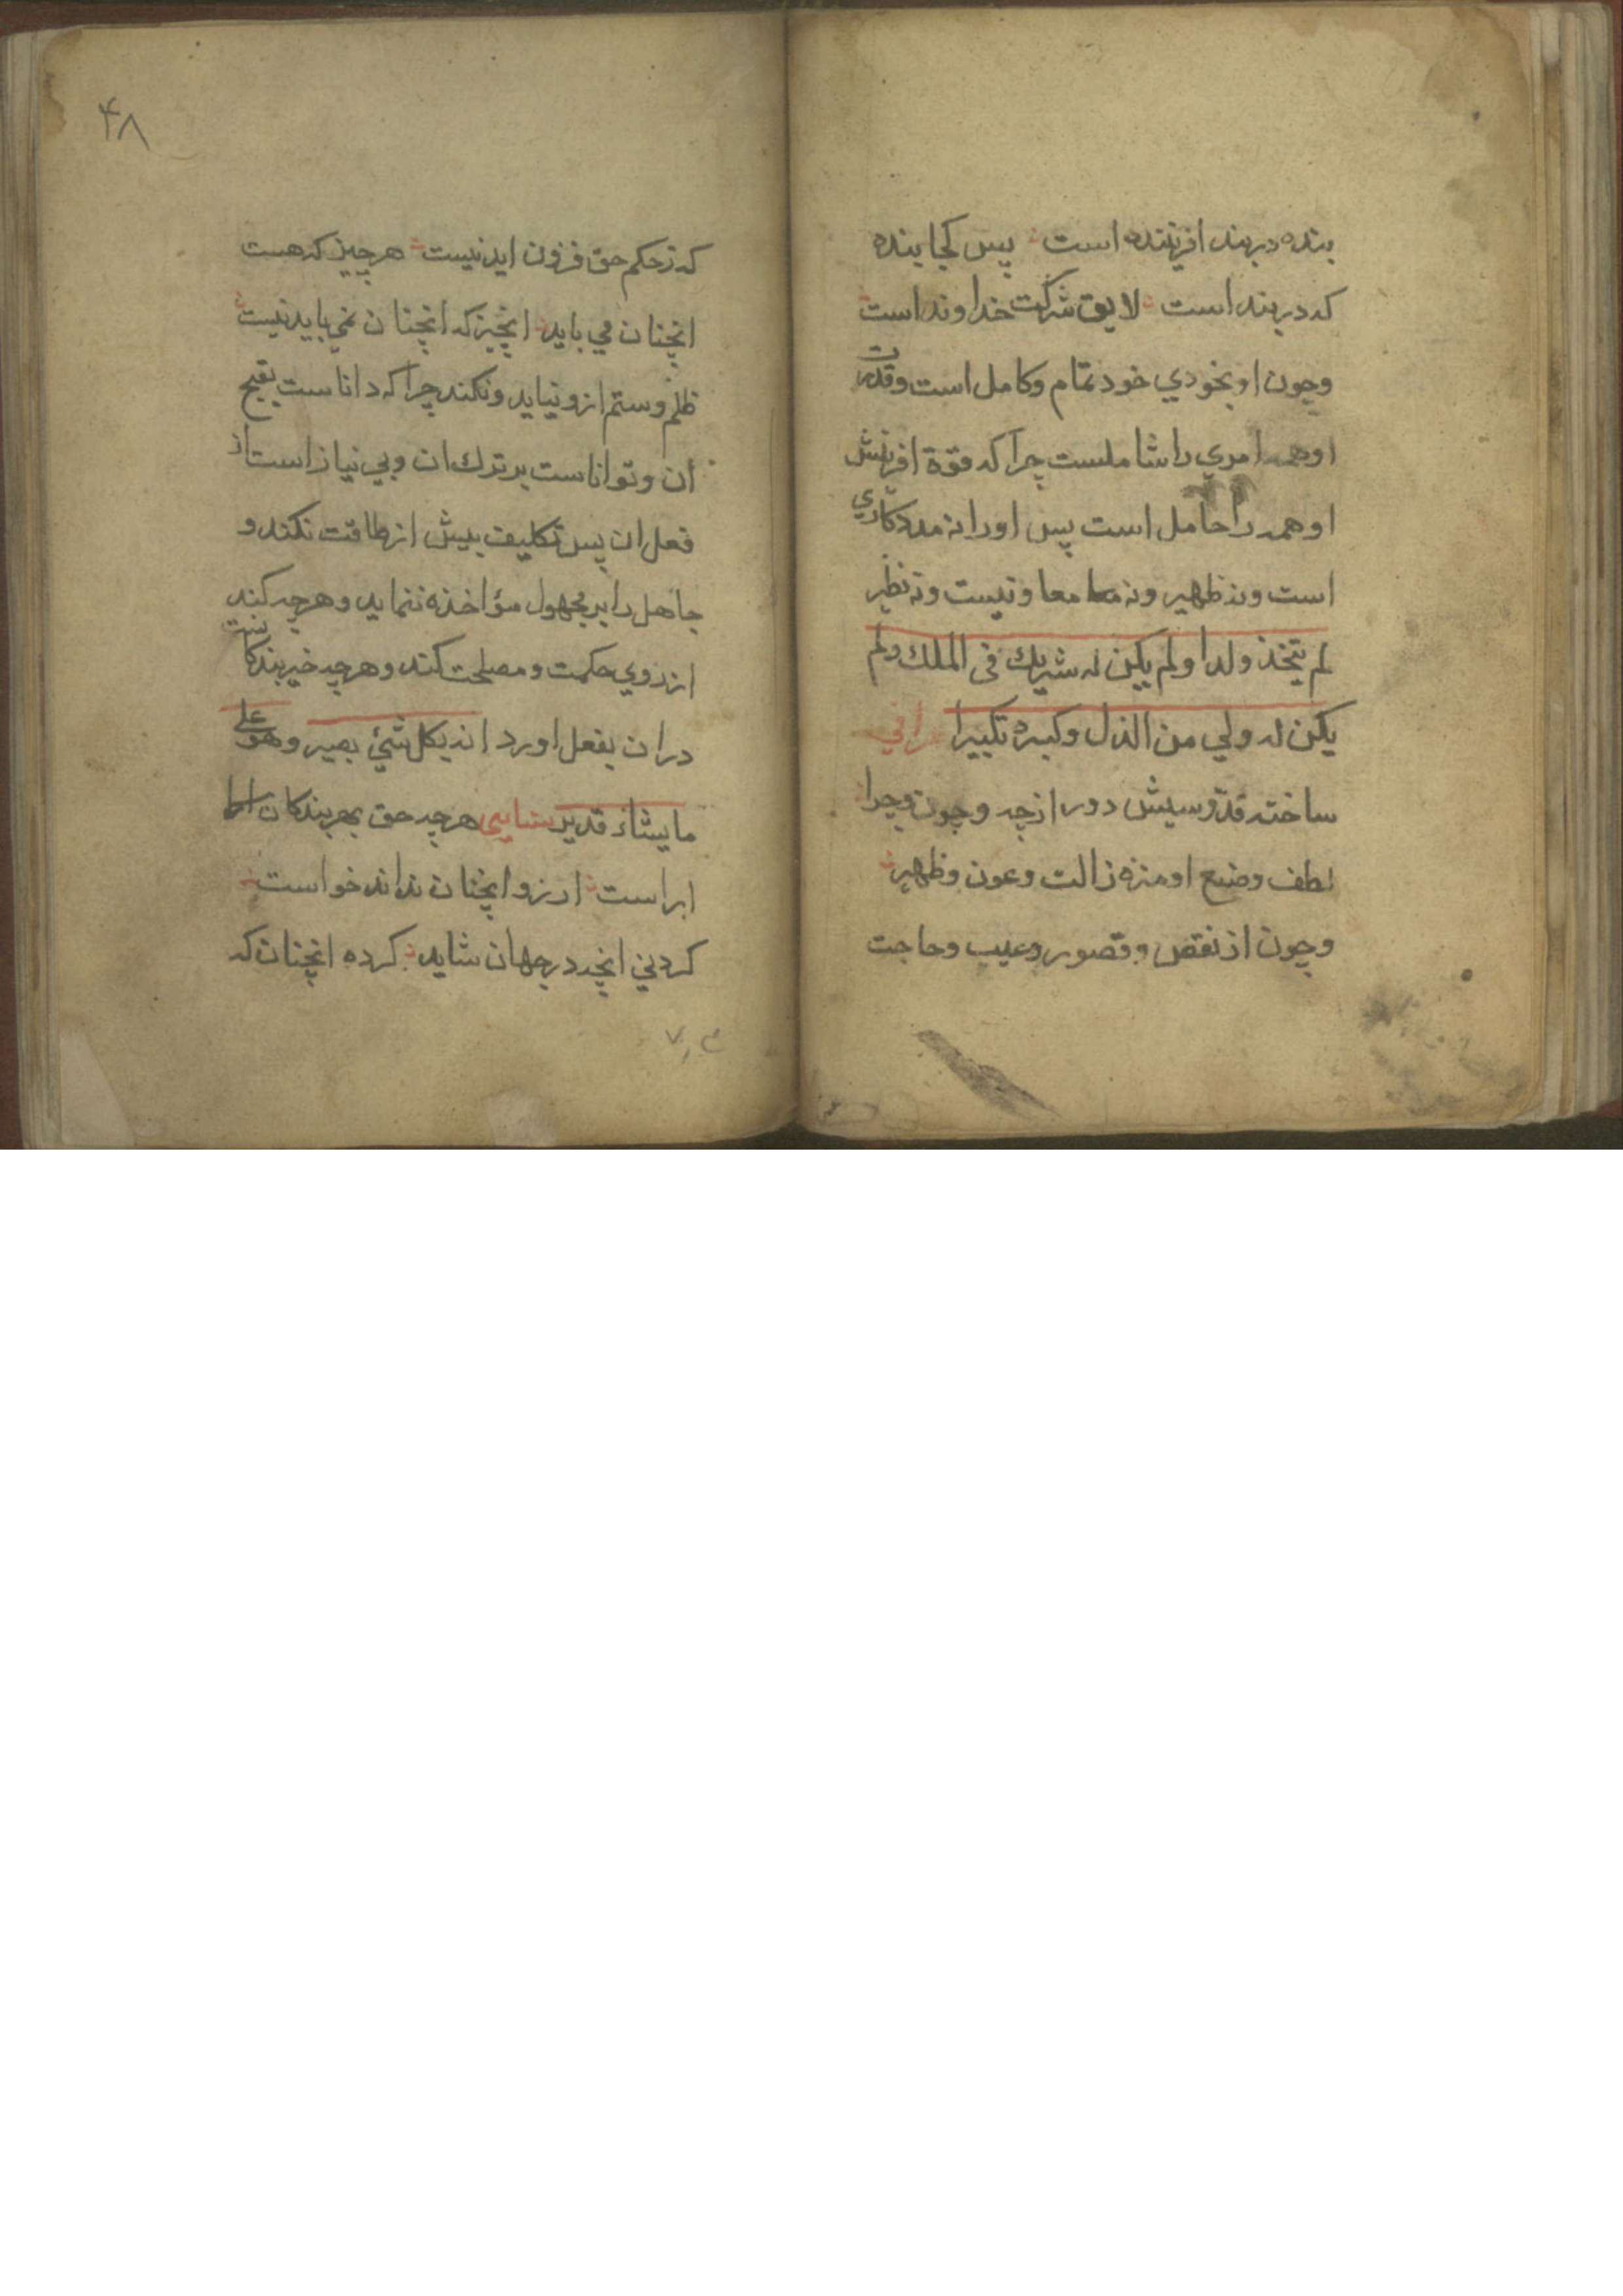 بنده دربند افریننده است پس کجا بنده
که دربند است لایق شرکت خداوند است
وچون او بخودي خود تمام وکامل است وقدرت
او همه امري را شاملست چرا که قوة افرینش
او همه را حامل است پس او را نه مددکاري
است ونه ظهیر ونه معاونیست ونه نظیر
لم یتخذ ولدا ولم یکن له شریك فی الملك ولم
یکن له ولي من الذل وکبره تکبیرا
ساخته قدّوسیش دور ازچه وچون وچرا
لطف وصنع او منزه زالت وعون وظهیر
وچون از نقص وقصور وعیب وحاجت
۴۸
که زحکم حق فزون اید نیست هر چیز که هست
انچنان می باید انچیز که انچنان نمی باید نیست
ظلم وستم ازو نیاید ونکند چرا که داناست بقبح
أن وتواناست بر ترك ان وبي نیاز است از
فعل ان پس تکلیف بیش از طاقت نکند و
جاهل را بر مجهول مؤاخذه ننماید وهرچه کند
از روي حکمت ومصلحت کند وهرچه خیر بندکانست
دران بفعل اورد انه بکل شئ بصیر وهو علی
مایشاء قدیر هرچه حق بهر بندکان
ارزو انچنان نداند خواست
کردني انچه درجهان شاید کرده انچنان که